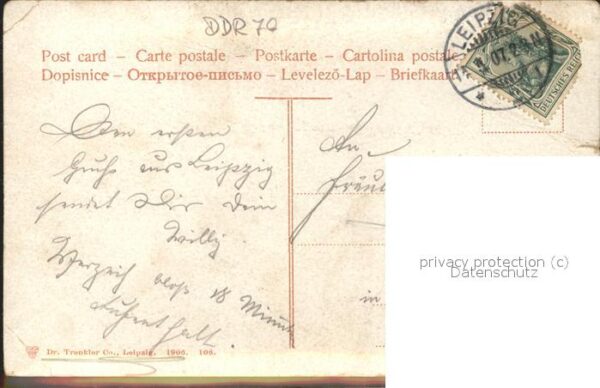 DDR 70
Post card – Carte postale – Postkarte – Cartolina postale
Dopisnice – Открытое-письмо – Levelező-Lap – Briefkaart
LEIPZIG
07.
DEUTSCHES REICH
Den ersten
Gruß aus Leipzig
sendet Dir Dein
Willy.
Verzeih bloß 18 Minut
Aufenthalt.
An
in
privacy protection (c)
Datenschutz
Dr. Trenkler Co., Leipzig. 1906. 108.